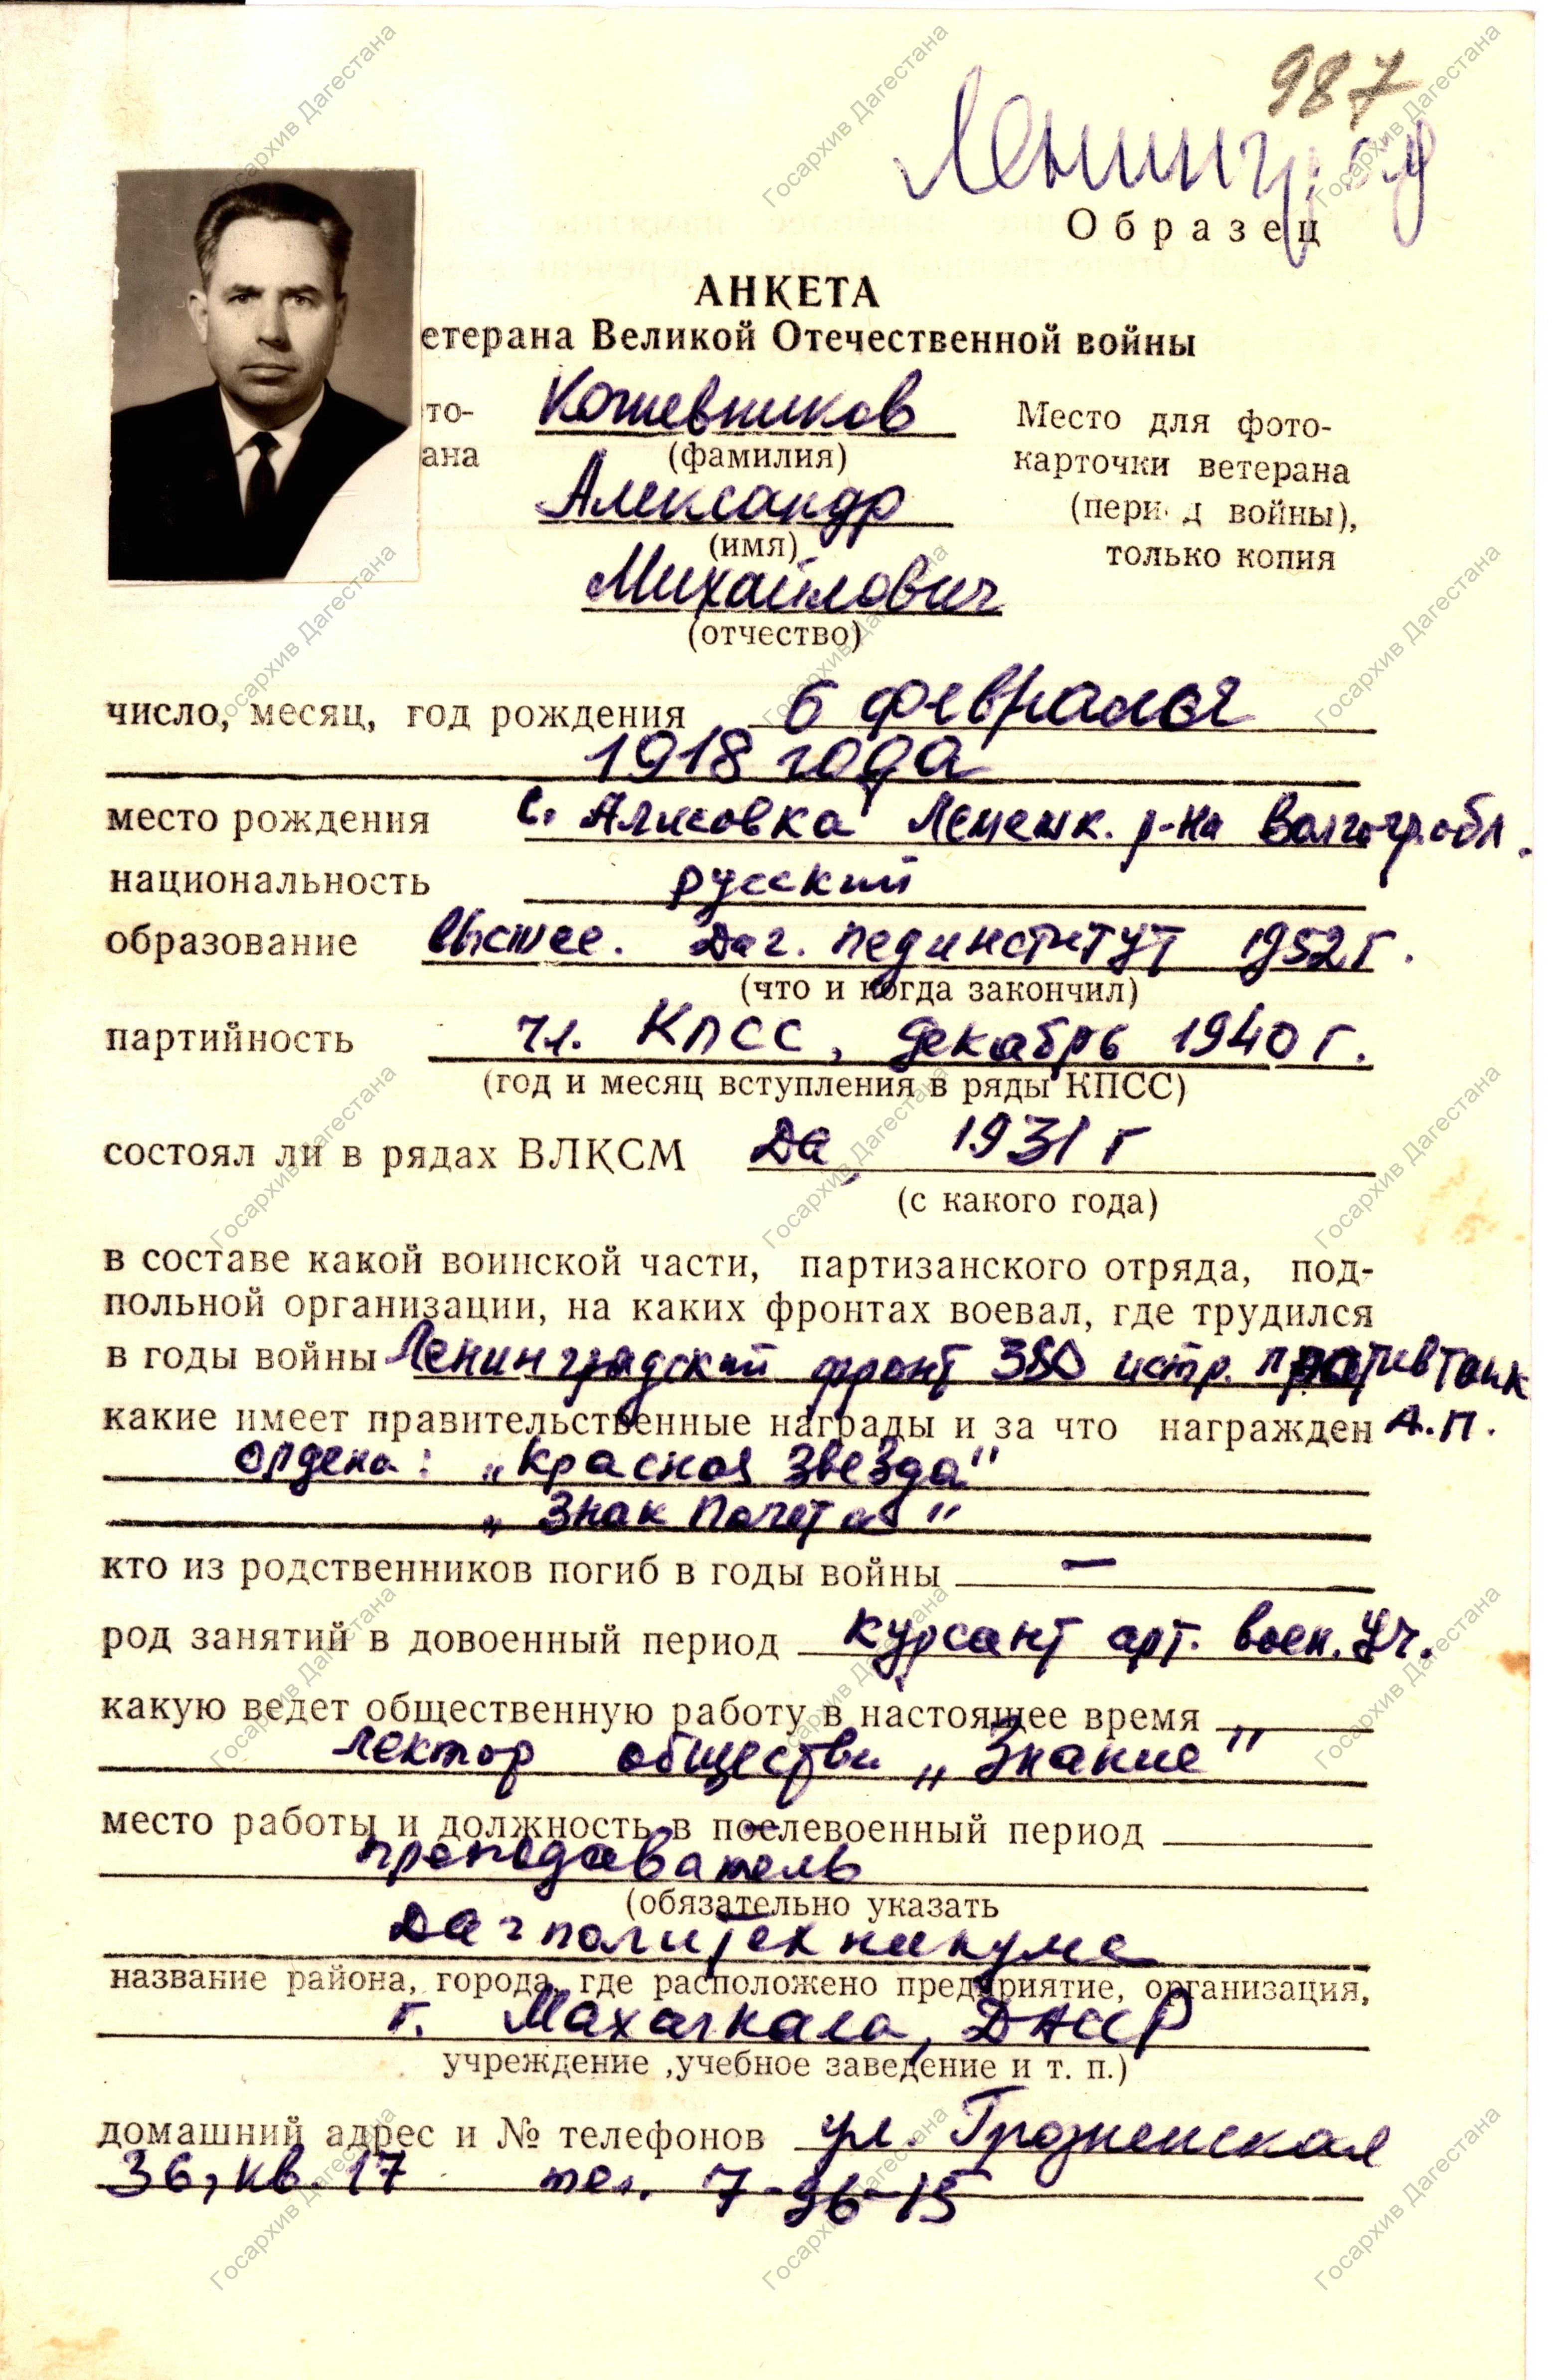 987
Ленинград
Образец
АНКЕТА
етерана Великой Отечественной войны
то-
ана
Кожевников
(фамилия)
Александр
(имя)
Михайлович
(отчество)
Место для фото-
карточки ветерана
(пери д войны),
только копия
число, месяц, год рождения 6 февраля
1918 года
место рождения с. р-на Волгогр. обл.
национальность русский
образование высшее. Даг. пединститут 1952 г.
(что и когда закончил)
партийность чл. КПСС, декабрь 1940 г.
(год и месяц вступления в ряды КПСС)
состоял ли в рядах ВЛКСМ Да, 1931 г
(с какого года)
в составе какой воинской части, партизанского отряда, под-
польной организации, на каких фронтах воевал, где трудился
в годы войны Ленинградский фронт истр. противтанк
какие имеет правительственные награды и за что награжден А.П.
ордена: „Красная Звезда"
„Знак Почета"
кто из родственников погиб в годы войны —
род занятий в довоенный период курсант арт. воен. уч.
какую ведет общественную работу в настоящее время
лектор общества „Знание"
место работы и должность в послевоенный период
преподаватель
(обязательно указать
Дагполитехникума
название района, города, где расположено предприятие, организация,
г. Махачкала, ДАССР
учреждение ,учебное заведение и т. п.)
домашний адрес и № телефонов ул. Грозненская
36, кв. 17 тел. 7-96-15
Госархив Дагестана